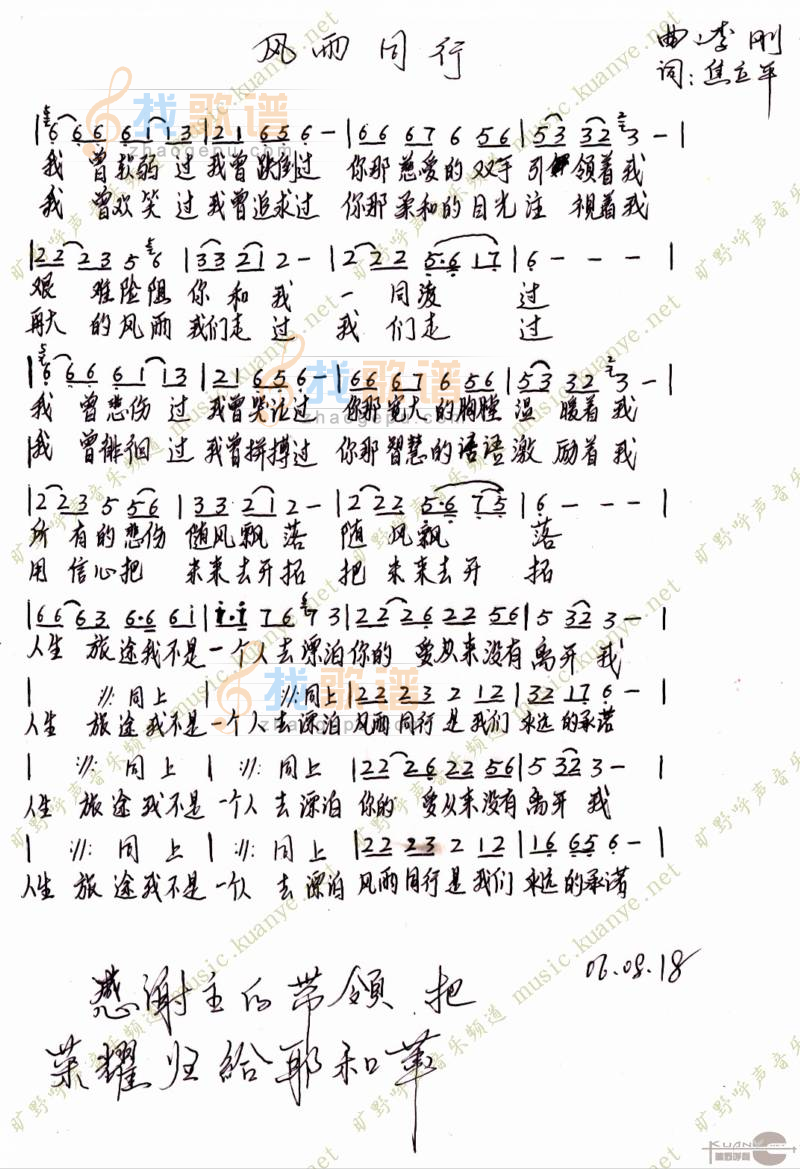 风雨同行
曲：李刚
词：焦立平
|6 6 6 6 1 3|2 1 6 5 6 -|6 6 6 7 6 5 6|5 3 3 2 3 -|
我 曾软弱 过我曾跌倒过 你那慈爱的双手引 领着我
我 曾欢笑 过我曾追求过 你那柔和的目光注 视着我
|2 2 2 3 5 6|3 3 2 1 2 -|2 2 2 5·6 1 7|6 - - -|
艰 难险阻 你 和 我 一 同渡 过
再大 的风雨 我们走 过 我 们走 过
|6 6 6 6 1 1 3|2 1 6 5 6 -|6 6 6 7 6 5 6|5 3 3 2 3 -|
我 曾悲伤 过 我曾哭泣过 你那宽大的胸膛 温 暖着我
我 曾徘徊 过 我曾拼搏过 你那智慧的话语激 励着我
|2 2 2 3 5 5 6|3 3 2 1 2 -|2 2 2 5·6 7 5|6 - - -|
所 有的悲伤 随风飘 落 随 风飘 落
用 信心把 未来去开拓 把 未来去开 拓
|6 6 6 3 6·6 6 i|i·i 7 6 7 3|2 2 2 6 2 2 5 6|5 3 2 3 -|
人生 旅途我不是一个人去漂泊你的 爱从来没有离开 我
| :// : 同上 | :// : 同上|2 2 2 3 2 1 2|3 2 1 7 6 -|
人生 旅途我不是一个人去漂泊风雨同行是我们 永远的承诺
| :// : 同上 | :// : 同上 |2 2 2 6 2 2 5 6|5 3 2 3 -|
人生 旅途我不是一个人 去漂泊 你的 爱从来没有离开 我
| :// : 同上 | :// : 同上 |2 2 2 3 2 1 2|1 6 6 5 6 -|
人生 旅途我不是一个人 去漂泊 风雨同行是我们 永远的承诺
06.08.18
感谢主的带领 把
荣耀归给耶和華
找歌谱
zhaogepu.com
旷野呼声音乐频道 music.kuanye.net